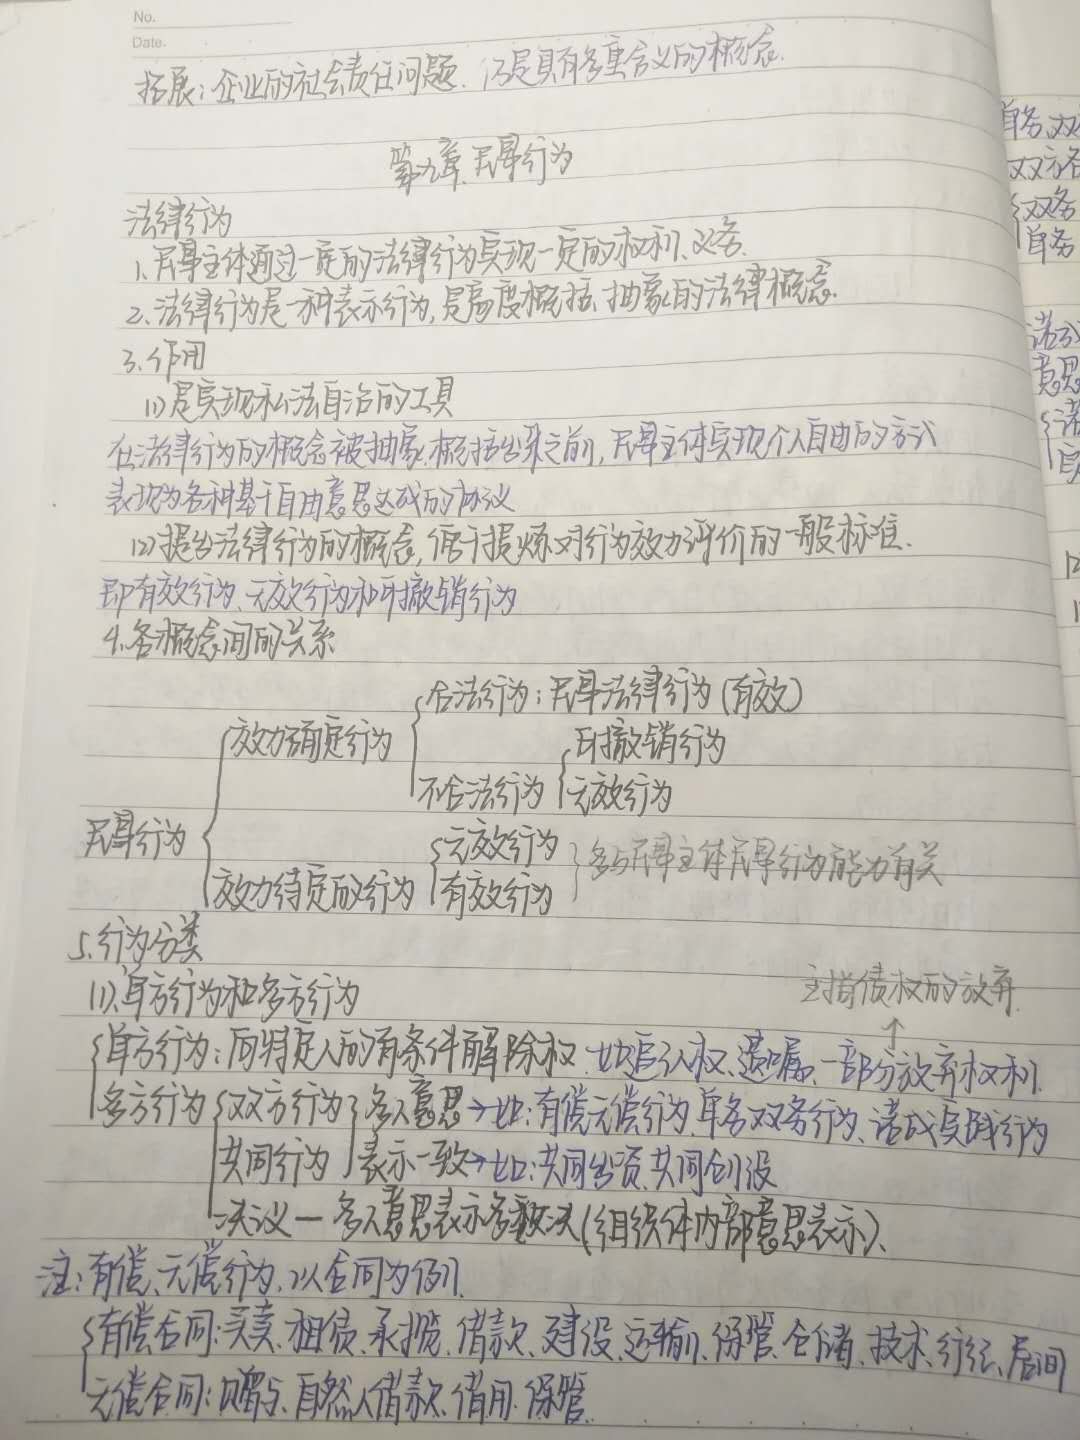 No.
Date.
拓展:企业的社会责任问题.乃是具有多重含义的概念.
第九章.民事行为
法律行为
1.民事主体通过一定的法律行为实现一定的权利、义务.
2.法律行为是一种表示行为,是高度概括、抽象的法律概念.
3.作用
(1)是实现私法自治的工具
在法律行为的概念被抽象.概括出来之前,民事主体实现个人自由的方式
表现为各种基于自由意思达成的协议
(2)提出法律行为的概念,便于提炼对行为效力评价的一般标准.
即有效行为、无效行为和可撤销行为
4.各概念间的关系
合法行为:民事法律行为(有效)
效力确定行为
可撤销行为
不合法行为
无效行为
民事行为
无效行为
多与民事主体民事行为能力有关
效力待定的行为
有效行为
5.行为分类
(1).单方行为和多方行为
主指债权的放弃.
单方行为:向特定人的有条件解除权.比追认权、遗嘱、一部分放弃权利.
多方行为 双方行为 多人意思→比:有偿无偿行为、单务双务行为、诺成实践行为
共同行为 表示一致→比:共同出资.共同创设
决议—多人意思表示多数决(组织体内部意思表示)、
注:有偿、无偿行为,以合同为例.
有偿合同:买卖.租赁、承揽、借款、建设、运输、保管、仓储、技术、行纪、居间
无偿合同:赠与、自然人借款、借用.保管.
单务、双
双方各
双务
单务
诺成
意思
诺